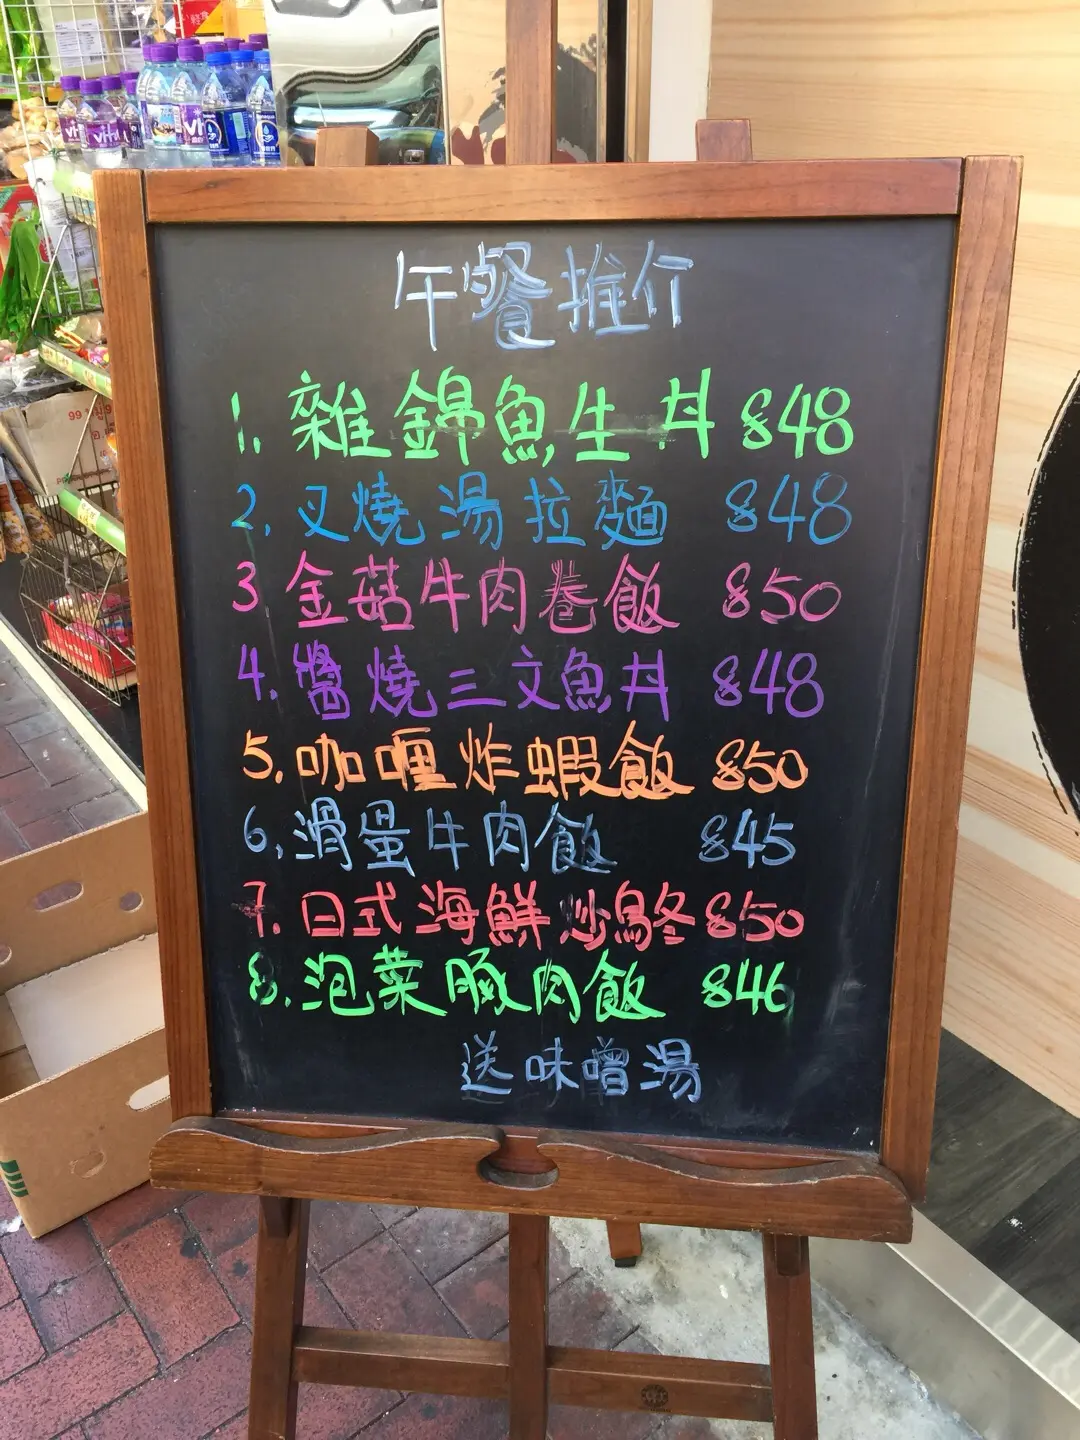 午餐推介
1. 雜錦魚生丼 $48
2. 叉燒湯拉麵 $48
3 金菇牛肉卷飯 $50
4. 醬燒三文魚丼 $48
5. 咖喱炸蝦飯 $50
6. 滑蛋牛肉飯 $45
7. 日式海鮮炒烏冬 $50
8. 泡菜豚肉飯 $46
送味噌湯